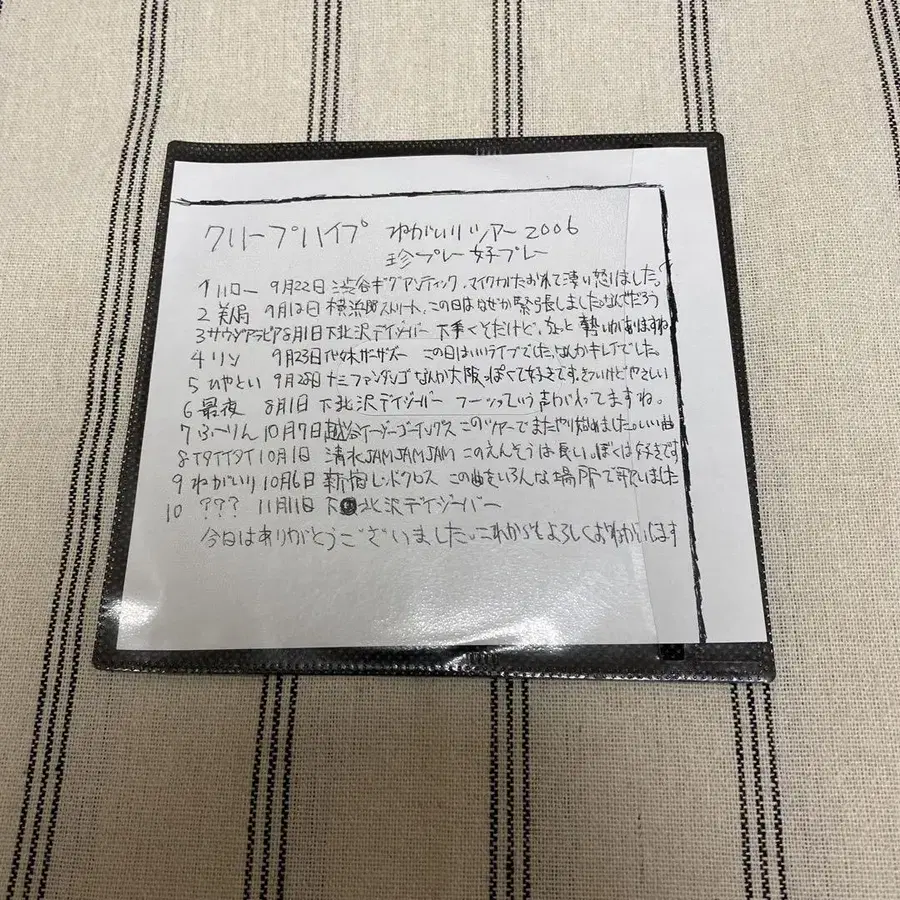 クリープハイプ ねがいりツアー2006
珍プレー好プレー
1 ハロー 9月22日 渋谷ギグアンティック、マイクがたおれて凄い怒りました。
2 美人局 9月12日 横浜 ストリート、この日はなぜか緊張しました。なんでだろう
3 サウジアラビア 8月1日 下北沢デイジーバー 下手くそだけど、 熱いがありますね
4 リン 9月23日 代々木ザーザズー この日はいいライブでした。なんかキレイでした。
5 ひやとい 9月28日 十三ファンダンゴ なんか大阪っぽくて好きです。きついけどやさしい
6 最夜 8月1日 下北沢デイジーバー フーッっていう声が入ってますね。
7 ふーりん 10月7日 越谷イージーゴーイングス このツアーでまたやり始めました。いい曲
8 イタイイタイ 10月1日 清水JAMJAMJAM このえんそうは長い。ぼくは好きです
9 ねがいり 10月6日 新宿レッドクロス この曲をいろんな場所で歌いました
10 ??? 11月11日 下北沢デイジーバー
今日はありがとうございました。これからもよろしくおねがいします